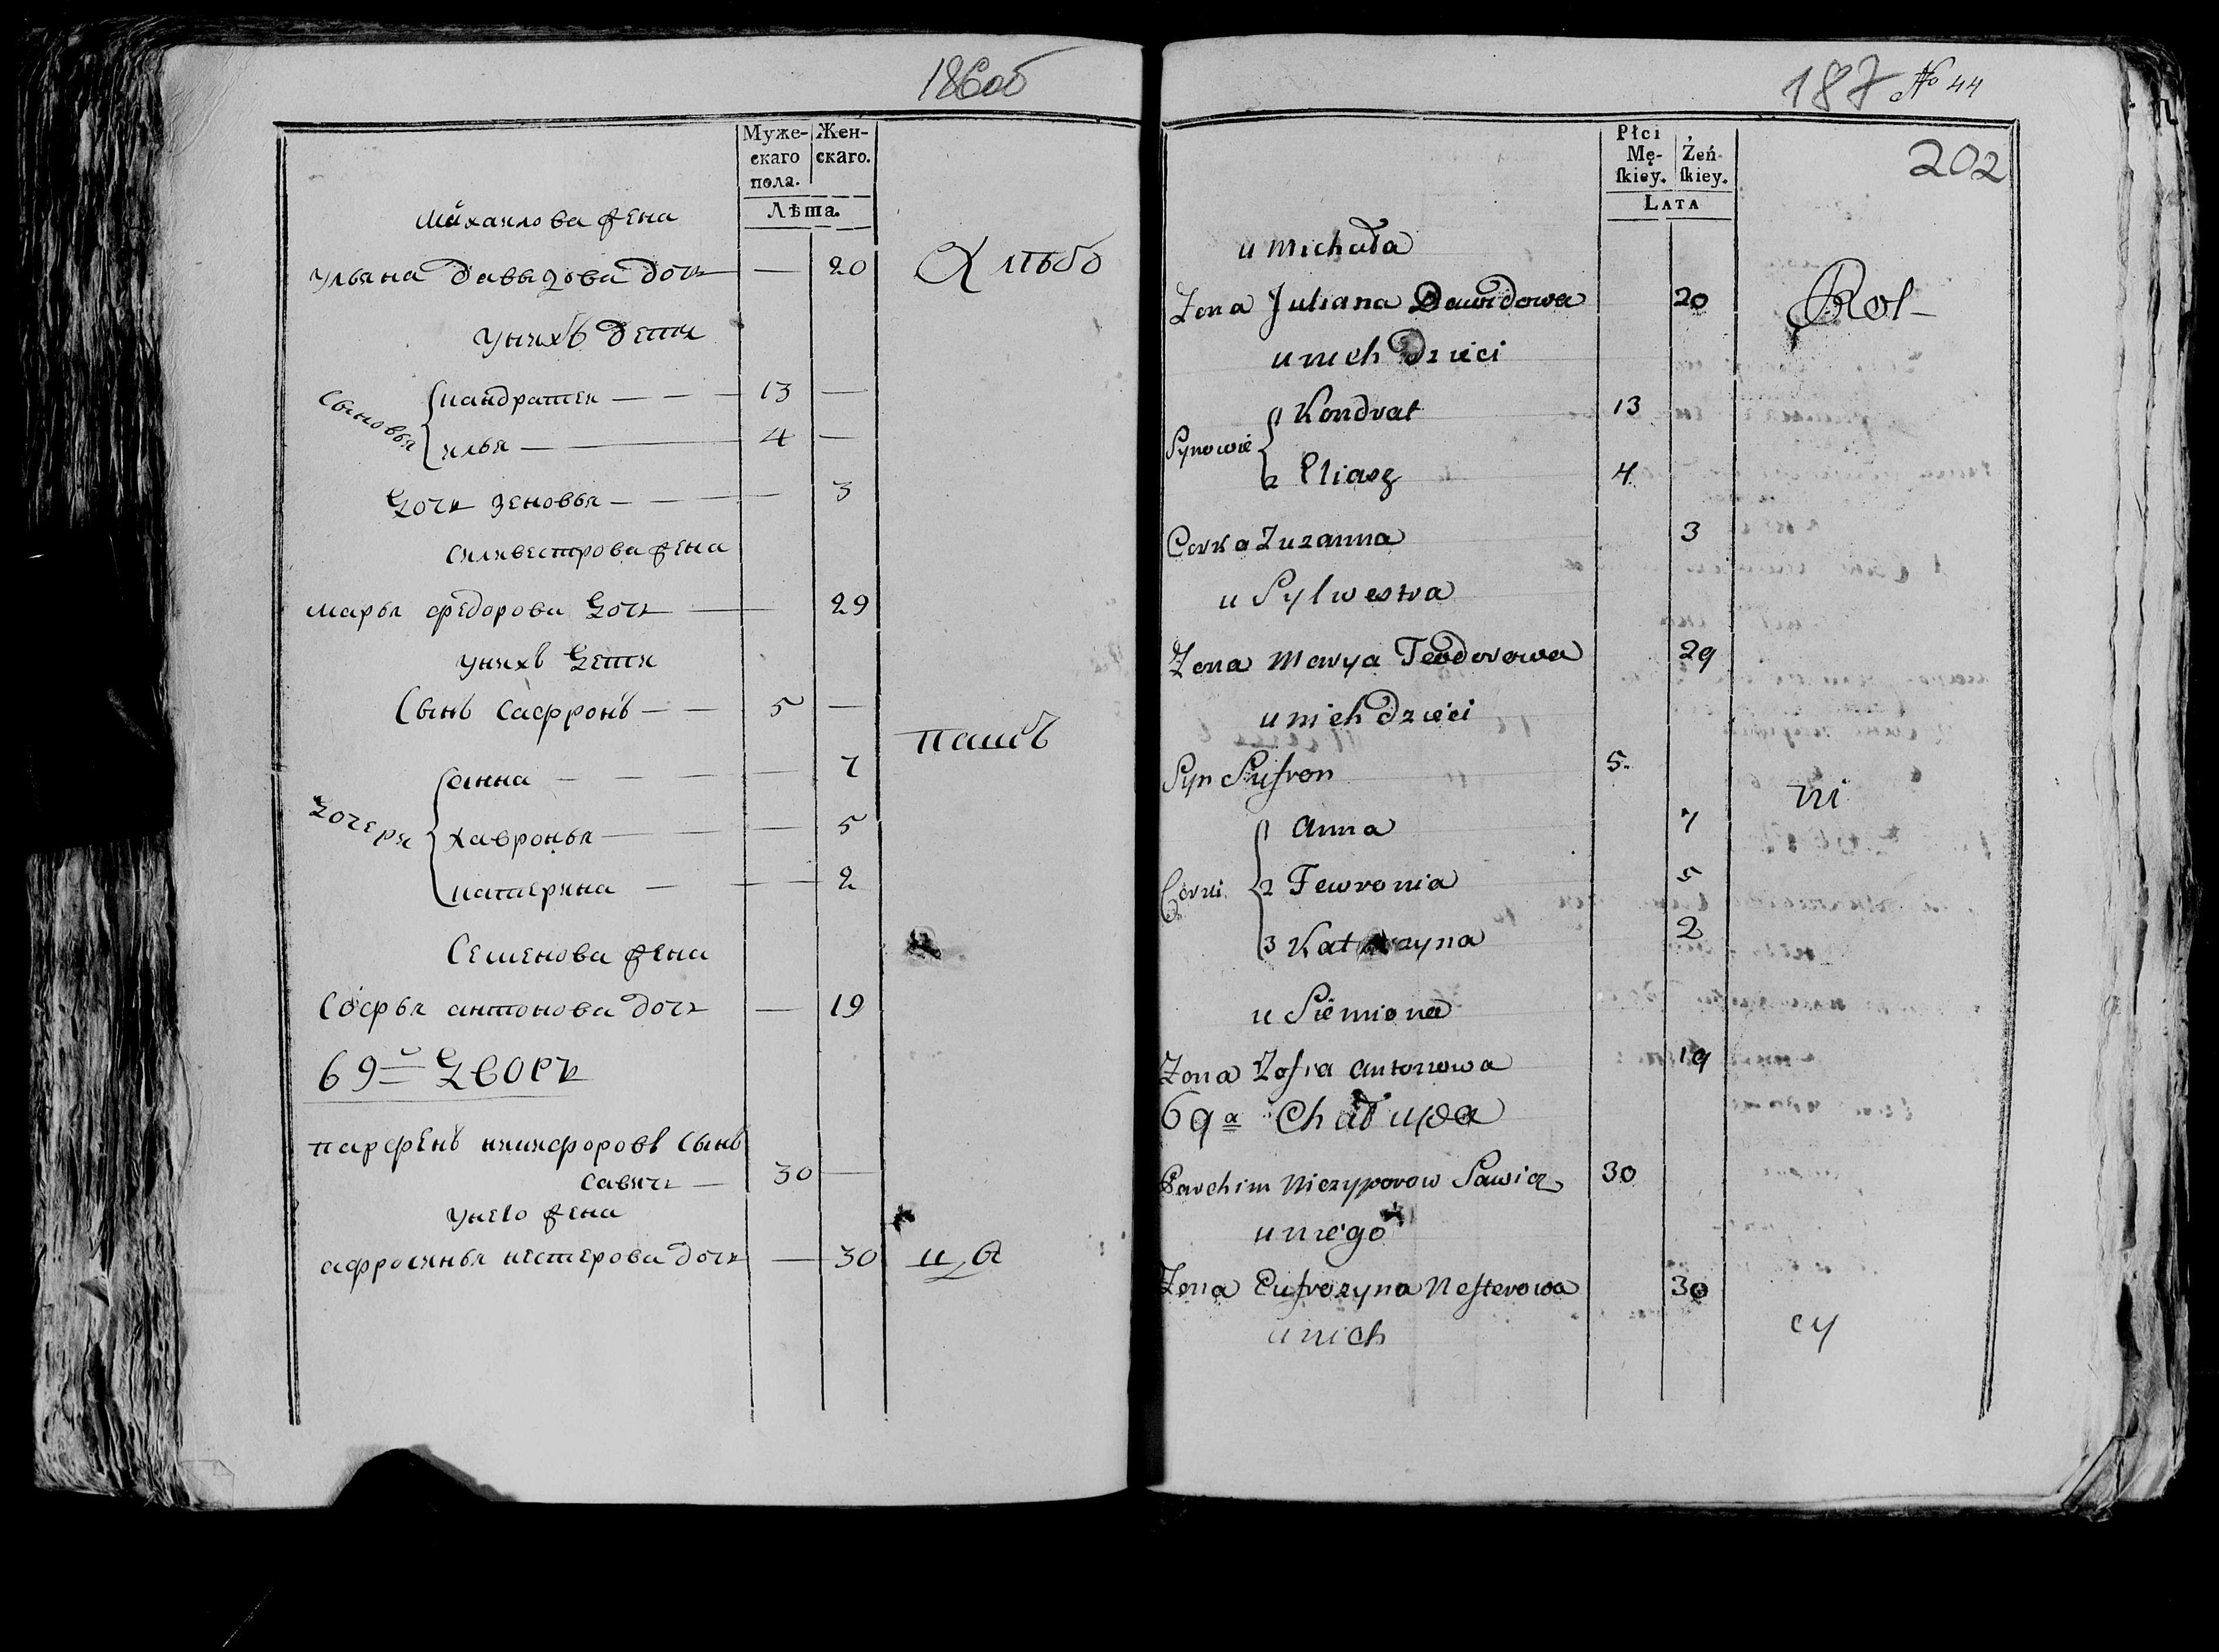 186об
Муже-
скаго
пола.
Жен-
скаго.
Лѣта.
Михаилова жена
Ульяна Давыдова дочь — 20
Хлѣбо
у нихъ дети
Сыновья
кандратей — 13 —
илья — 4 —
Дочь зеновья — 3
силивестрова жена
марья федорова дочь — 29
у нихъ дети
Сынъ Сафронъ — 5 —
пашѣ
Дочери
анна — 7
хавронья — 5
катерина — 2
Семенова жена
Софья антонова дочь — 19
69й дворъ
парфенъ никифоровъ Сынъ
савичь — 30 —
у него жена
афросинья нестерова дочь — 30
ц,ы
187 No 44
202
Płci
Mę-
ſkiey.
Żeń-
ſkiey.
LATA
u Michała
Zona Juliana Dawidowa 20
Rol-
u nich dzieci
Synowie
1 Kondrat 13
2 Eliasz 4
Corka Zuzanna 3
u Sylwestra
Zona Marya Teodorowa 29
u nich dzieci
Syn Sufron 5.
ni
Córki
1 Anna 7
2 Fewronia 5
3 Katarzyna 2
u Siemiona
Zona Zofia Antonowa 19
69a Chałupa
Parchim Niczyporow Sawicz 30
u niego
Zona Eufrozyna Nesterowa 30
u nich
cy